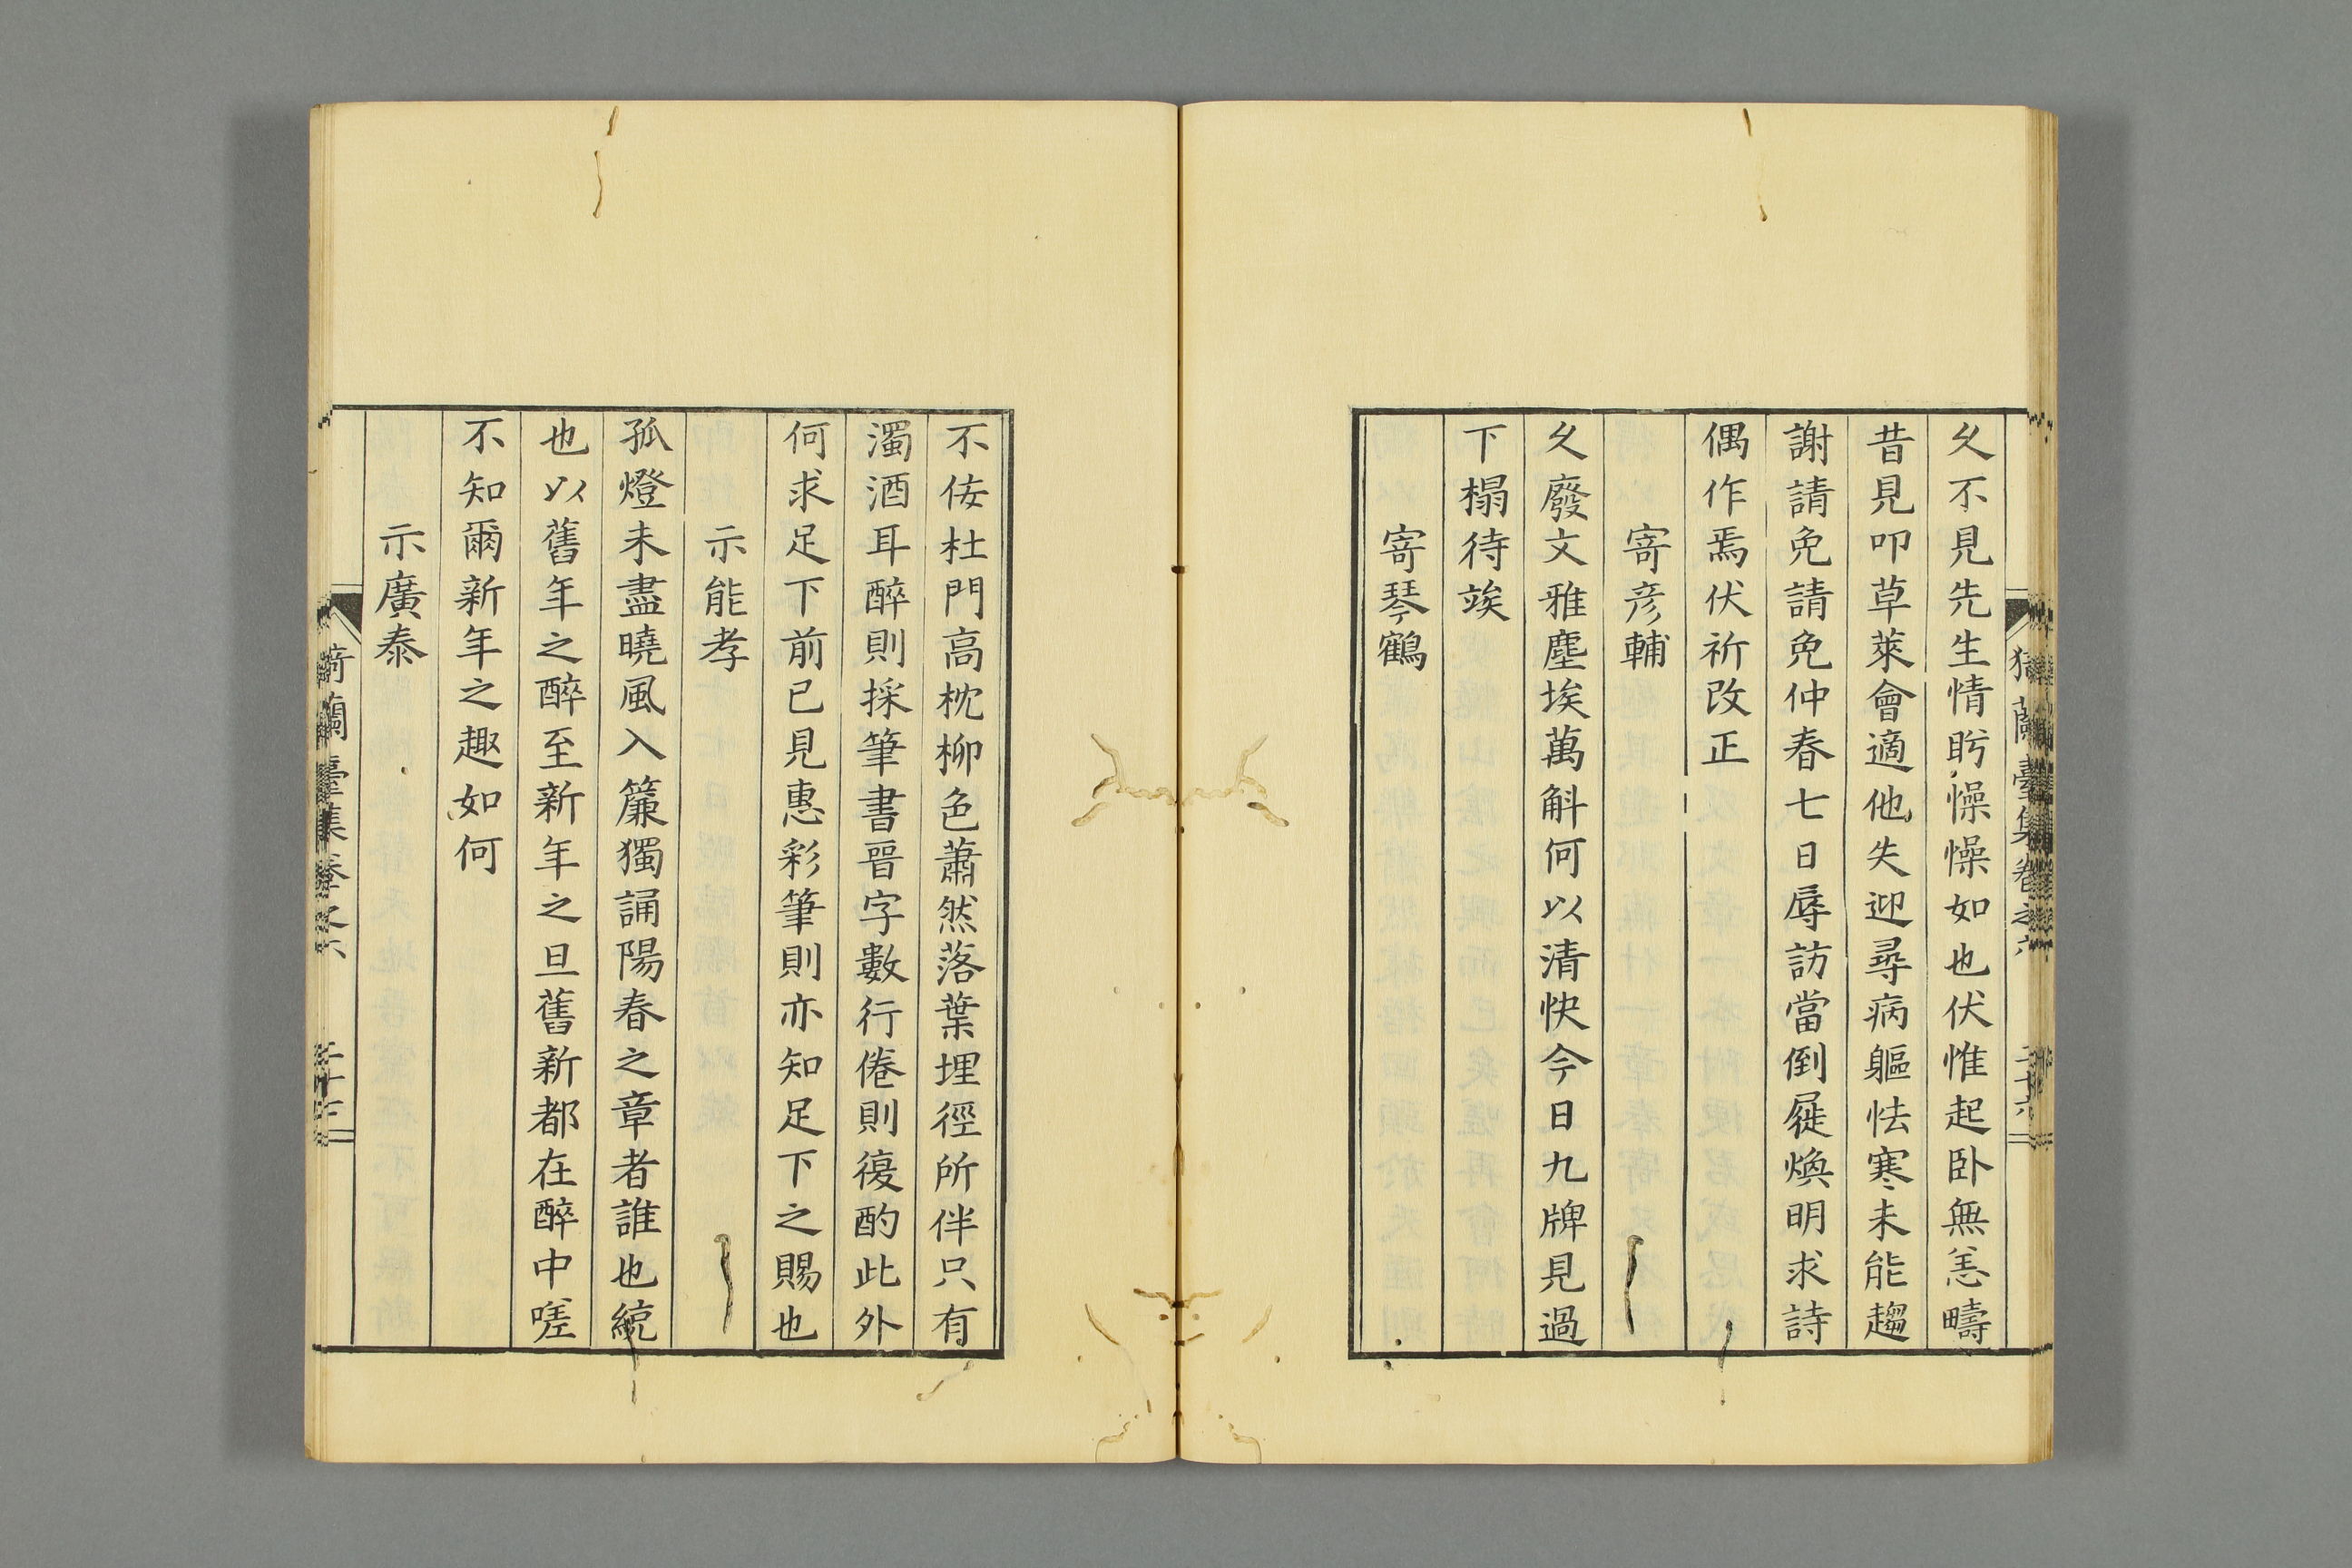 猗蘭臺集卷之六
二十六
久不見先生情盻懆懆如也伏惟起卧無恙疇
昔見叩草萊會適他失迎尋病軀怯寒未能趨
謝請免請免仲春七日辱訪當倒屣煥明求詩
偶作焉伏祈改正
寄彦輔
久廢文雅塵埃萬斛何以清快今日九牌見過
下榻待竢
寄琴鶴
不佞杜門高枕柳色蕭然落葉埋徑所伴只有
濁酒耳醉則採筆書晉字數行倦則復酌此外
何求足下前已見惠彩筆則亦知足下之賜也
示能孝
孤燈未盡曉風入簾獨誦陽春之章者誰也統
也以舊年之醉至新年之旦舊新都在醉中嗟
不知爾新年之趣如何
示廣泰
猗蘭臺集卷之六